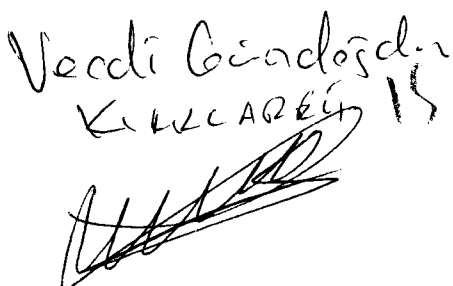 Vecdi Gündoğdu
KIRKLARELİ